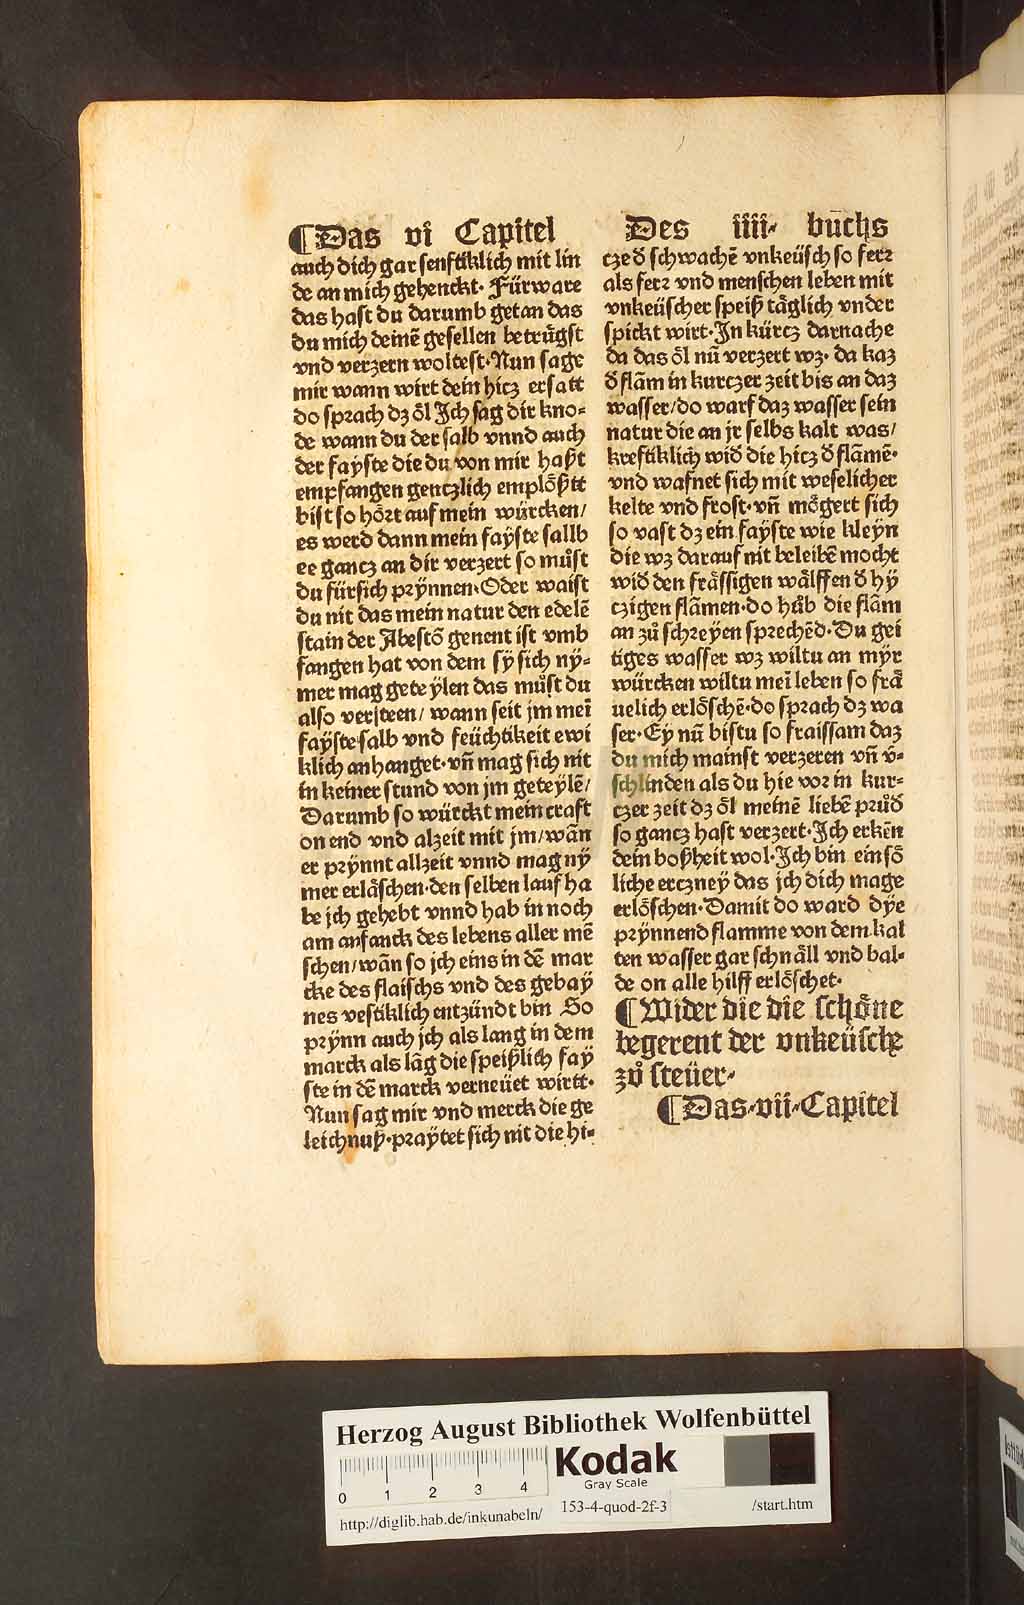 ¶Das vi Capitel
auch dich gar senftiklich mit lin
de an mich gehenckt· Fürware
das hast du darumb getan das
du mich deinē gesellen betrůgst
vnd verzern woltest·Nun sage
mir wann wirt dein hicz ersatt
do sprach dz ỏl Jch sag dir kno⸗
de wann du der salb vnnd auch
der fayste die du von mir haßt
empfangen genczlich emplỏßtt
bist so hỏꝛt auf mein würcken/
es werd dann mein fayste sallb
ee gancz an dir verzert so můst
du fürsich prẏnnen·Oder waist
du nit das mein natur den edelē
stain der Abestō genent ist vmb
fangen hat von dem sẏ sich nẏ⸗
mer mag geteẏlen das můst du
also versteen/ wann seit jm mei
faẏste salb vnd feüchtikeit ewi
klich anhanget·vn̄ mag sich nit
in keiner stund von jm geteẏlē/
Darumb so würckt mein craft
on end vnd alzeit mit jm/wān
er prẏnnt allzeit vnnd mag nẏ
mer erlåschen·den selben lauf ha
be jch gehebt vnnd hab in noch
am anfanck des lebens aller mē
schen/wān so jch eins in dē mar
cke des flaischs vnd des gebaẏ
nes vestiklich entzündt bin So
prẏnn auch jch als lang in dem
marck als lāg die speißlich faẏ
ste in dē marck verneüet wirtt·
Nun sag mir vnd merck die ge
leichnuß·praẏtet sich nit die hi⸗
Des iiii· bůchs
cze d̄ schwachē vnkeüsch so ferꝛ
als ferꝛ vnd menschen leben mit
vnkeüscher speiß tåglich vnder
spickt wirt·Jn kürcz darnache
da das ỏl nū verzert wz· da kaz
d̄ flām in kurczer zeit bis an daz
wasser/do warf daz wasser sein
natur die an jr selbs kalt was/
kreftiklich wid̄ die hicz d̄ flāmē·
vnd wafnet sich mit weselicher
kelte vnd frost·vn̄ mỏgert sich
so vast dz ein faẏste wie kleẏn
die wz darauf nit beleibē mocht
wid̄ den fråssigen wålffen d̄ hẏ
czigen flāmen·do hůb die flām
an zů schreẏen sprechēd·Du gei
tiges wasser wz wiltu an mẏr
würcken wiltu mei leben so frå
uelich erlỏschē·do sprach dz wa
ser·Eẏ nū bistu so fraissam daz
du mich mainst verzeren vn̄ v̄⸗
schlinden als du hie vor in kur⸗
czer zeit dz ỏl meinē liebē průd̄
so gancz hast verzert·Jch erkēn
dein boßheit wol·Jch bin ein sō
liche erczneẏ das jch dich mage
erlỏschen·Damit do ward dẏe
prẏnnend flamme von dem kal
ten wasser gar schnåll vnd bal⸗
de on alle hilff erlỏschet·
¶Wider die die schỏne
begerent der vnkeüsche
zů steüer·
¶Das·vii·Capitel
Herzog August Bibliothek Wolfenbüttel
0 1 2 3 4
Kodak
Gray Scale
http://diglib.hab.de/inkunabeln/
153-4-quod-2f-3
/start.htm